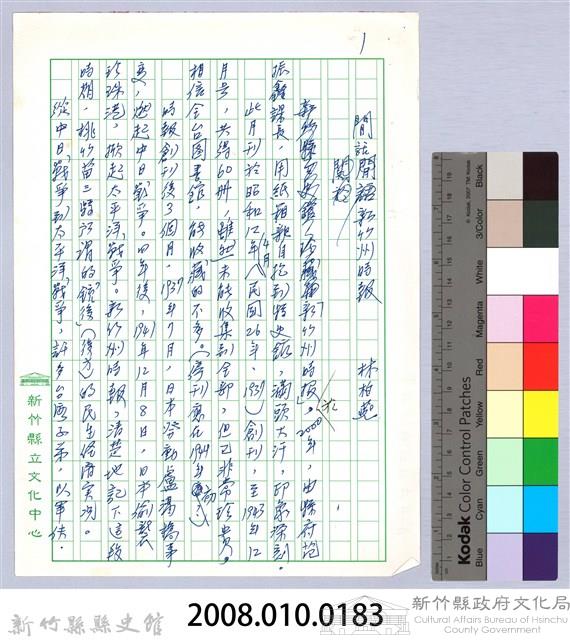 1
閒話開語新竹州時報
關於
林柏燕
新竹縣縣史館,珍藏有「新竹州時報」。2000年,由縣府范
振鑫課長,用紙箱親自抱到縣史館,滿頭大汗,印象深刻。
此月刊於昭和12年4月(民國26年,1937)創刊,至1943年12
月号,共得60冊,雖然未能收集到全部,但已非常珍貴。
相信全台圖書館,能收藏的不多。(停刊應在1944年初)
時報創刊後3個月,1937年7月,日本發動盧溝橋事
變,燃起中日戰爭。四年後,1941年12月8日,日本偷襲
珍珠港,掀起太平洋戰爭。新竹州時報,清楚地記下這段
時期,桃竹苗三縣所謂的「銃後」(後方)的民生經濟實況。
從中日戰爭到太平洋戰爭,許多台灣子弟,以軍伕.
新竹縣立文化中心
Kodak Color Control Patches
© Kodak, 2007 TM: Kodak
Blue
Cyan
Green
Yellow
Red
Magenta
White
3/Color
Black
新竹縣縣史館
2008.010.0183
新竹縣政府文化局
Cultural Affairs Bureau of Hsinchu
County Government